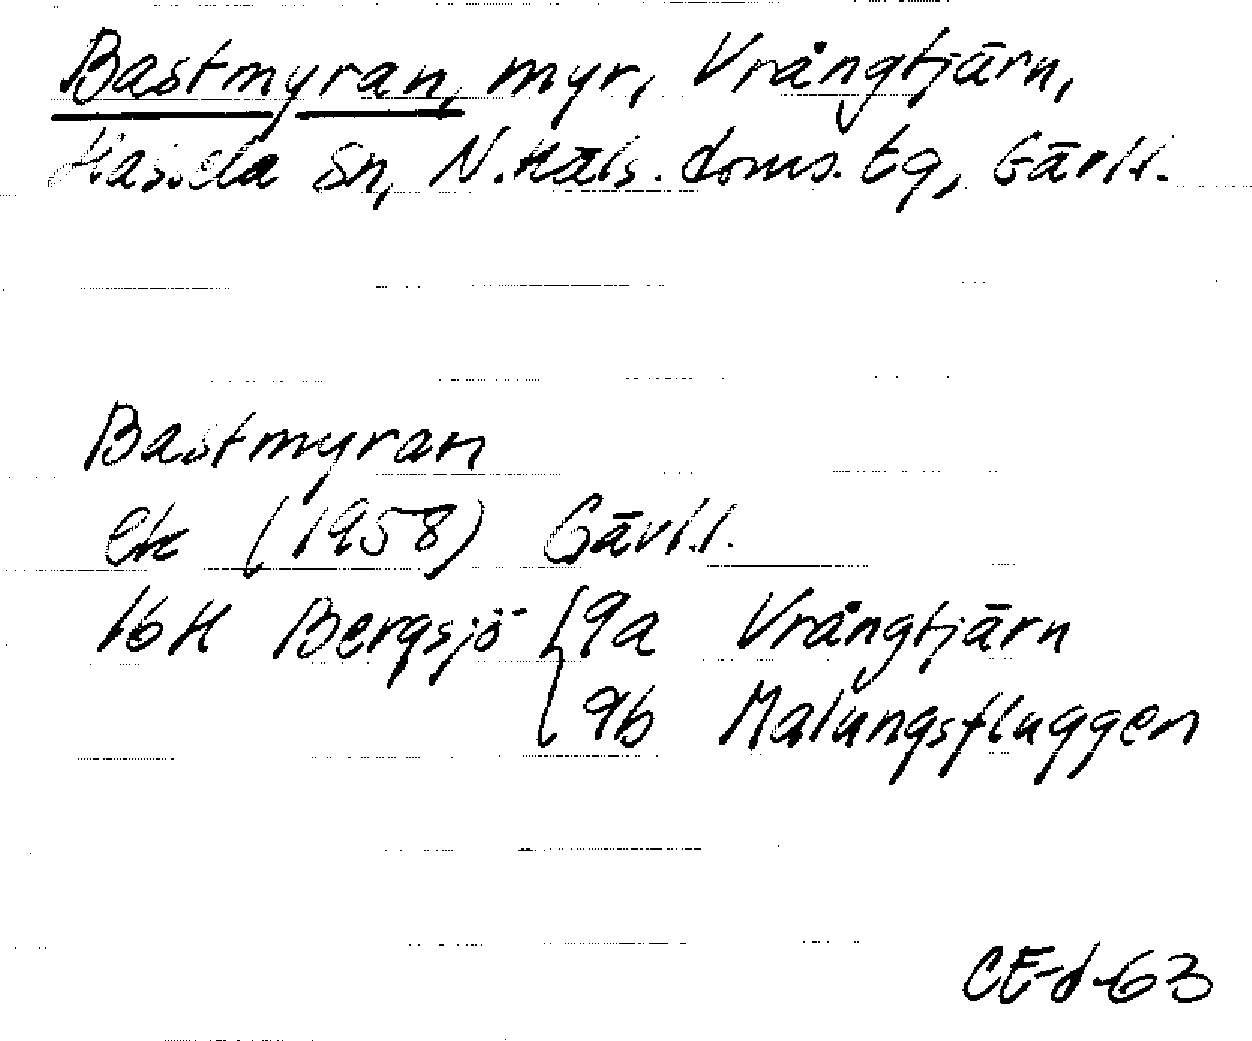 Bastmyran, myr, Vrångtjärn,
Hassela sn, N. Häls. doms. tg, Gävl.l.
Bastmyran
ek (1958) Gävl.l.
16H Bergsjö 9a Vrångtjärn
9b Malungsfluggen
CEd-63